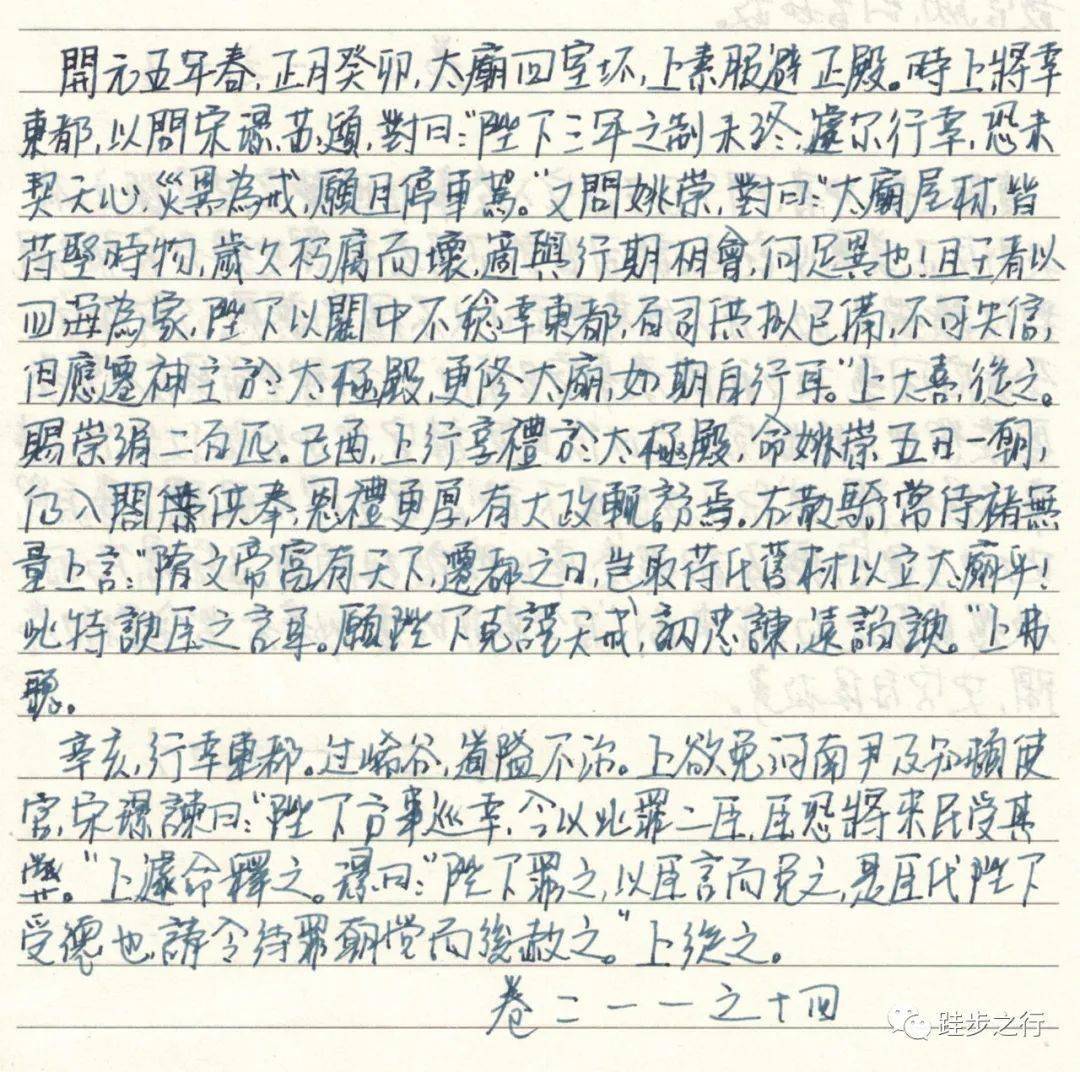 開元五年春,正月癸卯,太廟四室坏,上素服避正殿。時上將幸
東都,以問宋璟、苏頲,對曰:“陛下三年之制未终,遽尔行幸,恐未
契天心,災異為戒,願且停車駕。”又問姚崇,對曰:“太廟屋材,皆
苻堅時物,歲久朽腐而壞,適與行期相會,何足異也!且王者以
四海為家,陛下以關中不稔幸東都,百司供拟已備,不可失信,
但應遷神主於太極殿,更修太廟,如期自行耳。”上大喜,從之。
賜崇绢二百匹。己酉,上行享禮於太極殿,命姚崇五日一朝,
仍入閣供奉,恩禮更厚,有大政輒訪焉。右散騎常侍褚無
量上言:“隋文帝富有天下,遷都之日,岂取苻氏舊材以立太廟乎!
此特諛臣之言耳。願陛下克謹天戒,納忠諫,遠諂諛。”上弗
聽。
辛亥,行幸東都。过崤谷,道隘不治。上欲免河南尹及知頓使
官,宋璟諫曰:“陛下方事巡幸,今以此罪二臣,臣恐將来民受其
弊。”上遽命釋之。璟曰:“陛下罪之,以臣言而免之,是臣代陛下
受德也,請令待罪朝堂而後赦之。”上從之。
卷二一一之十四
跬步之行